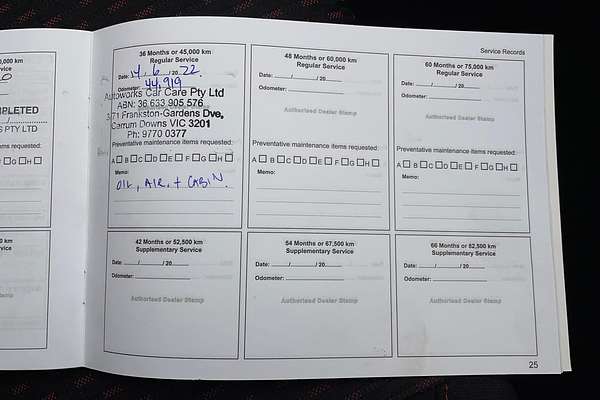 Service Records
,000 km
rvice
0
MPLETED
S PTY LTD
G H
00 km
ervice
36 Months or 45,000 km
Regular Service
Date: 14, 6 / 20 22.
Odometer: 44,919
Autoworks Car Care Pty Ltd
ABN: 36 633 905 576
3/71 Frankston-Gardens Dve,
Carrum Downs VIC 3201
Ph: 9770 0377
Preventative maintenance items requested:
A B C D E F G H
Memo:
OIL, AIR, + CABIN.
48 Months or 60,000 km
Regular Service
Date: / / 20
Odometer:
Authorised Dealer Stamp
Preventative maintenance items requested:
A B C D E F G H
Memo:
60 Months or 75,000 km
Regular Service
Date: / / 20
Odometer:
Authorised Dealer Stamp
Preventative maintenance items requested:
A B C D E F G H
Memo:
42 Months or 52,500 km
Supplementary Service
Date: / / 20
Odometer:
Authorised Dealer Stamp
54 Months or 67,500 km
Supplementary Service
Date: / / 20
Odometer:
Authorised Dealer Stamp
66 Months or 82,500 km
Supplementary Service
Date: / / 20
Odometer:
Authorised Dealer Stamp
25